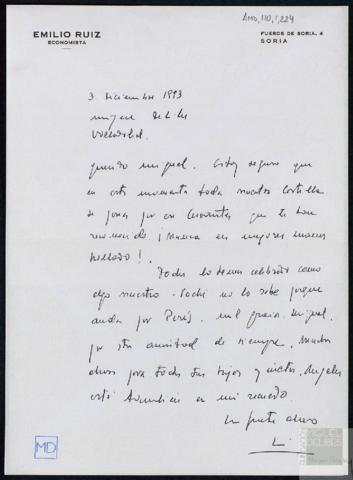 AMD, 110, 1, 224
EMILIO RUIZ
ECONOMISTA
FUEROS DE SORIA, 4
SORIA
3 diciembre 1993
Miguel Delibes
Valladolid.
Querido Miguel. Estoy seguro que
en este momento toda nuestra Castilla
se goza por ese Cervantes que te han
reconocido ¡Nunca en mejores manos
hallado!.
Todos lo hemos celebrado como
algo nuestro. no lo sabe porque
anda por París. Mil gracias Miguel
por tu amistad de siempre. Muchos
abrazos para todos tus hijos y nietos. Angeles
está también en mi recuerdo.
Un fuerte abrazo
MD
MIGUEL
DELIBES